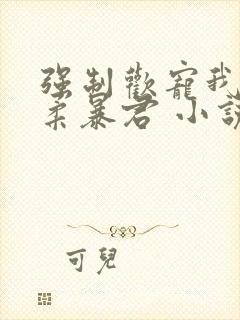 強制歡寵我
柔暴君 小說
可兒